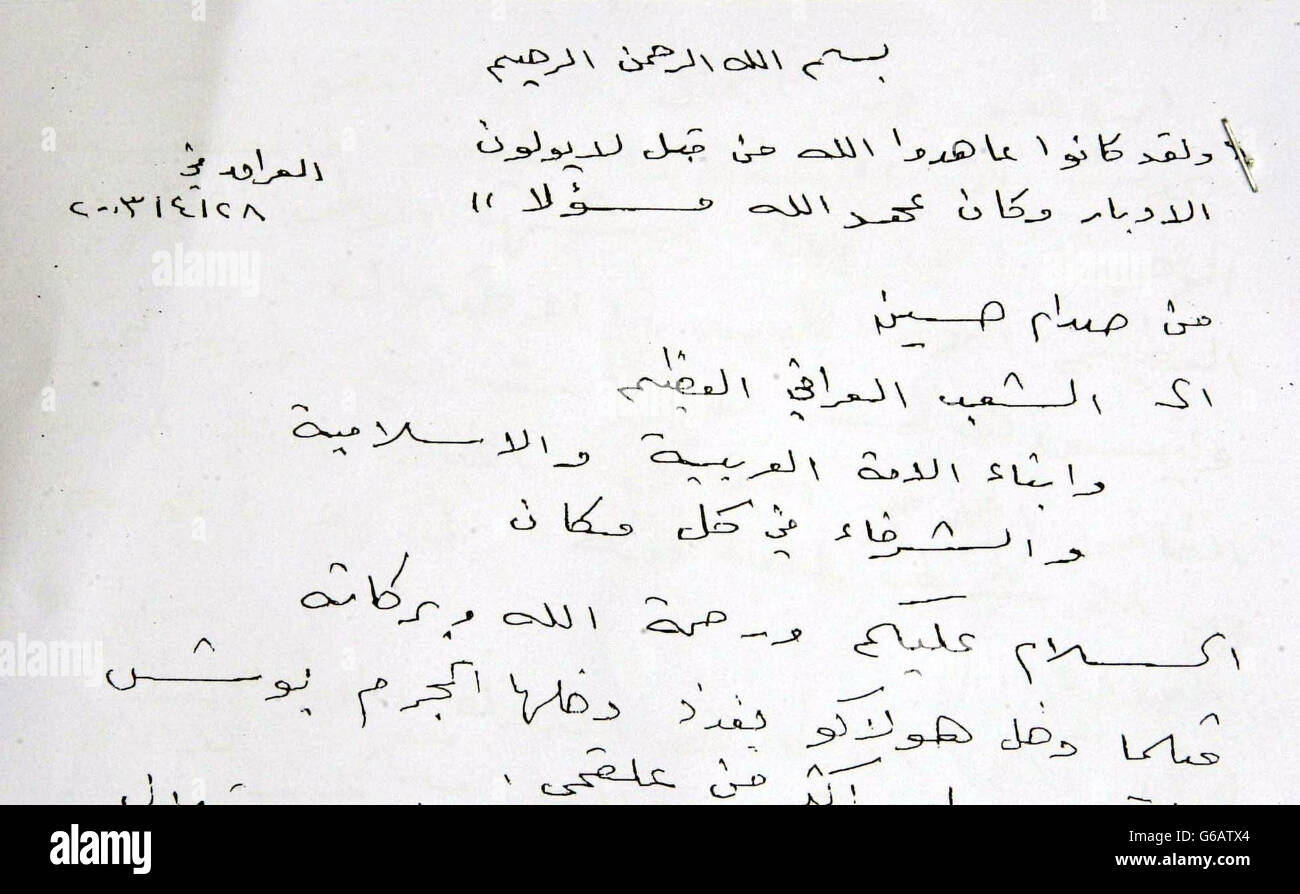 بسم الله الرحمن الرحيم
" ولقد كانوا عاهدوا الله من قبل لا يولون
الادبار وكان عهد الله مسؤلا "
العراق في
٢٠٠٣/٤/٢٨
من صدام حسين
الى الشعب العراقي العظيم
وابناء الامة العربية والاسلامية
والشرفاء في كل مكان
السلام عليكم ورحمة الله وبركاته
مثلما دخل هولاكو بغداد دخلها المجرم بوش
من علقمي
alamy
alamy
alamy
alamy
Image ID: G6ATX4
www.alamy.com